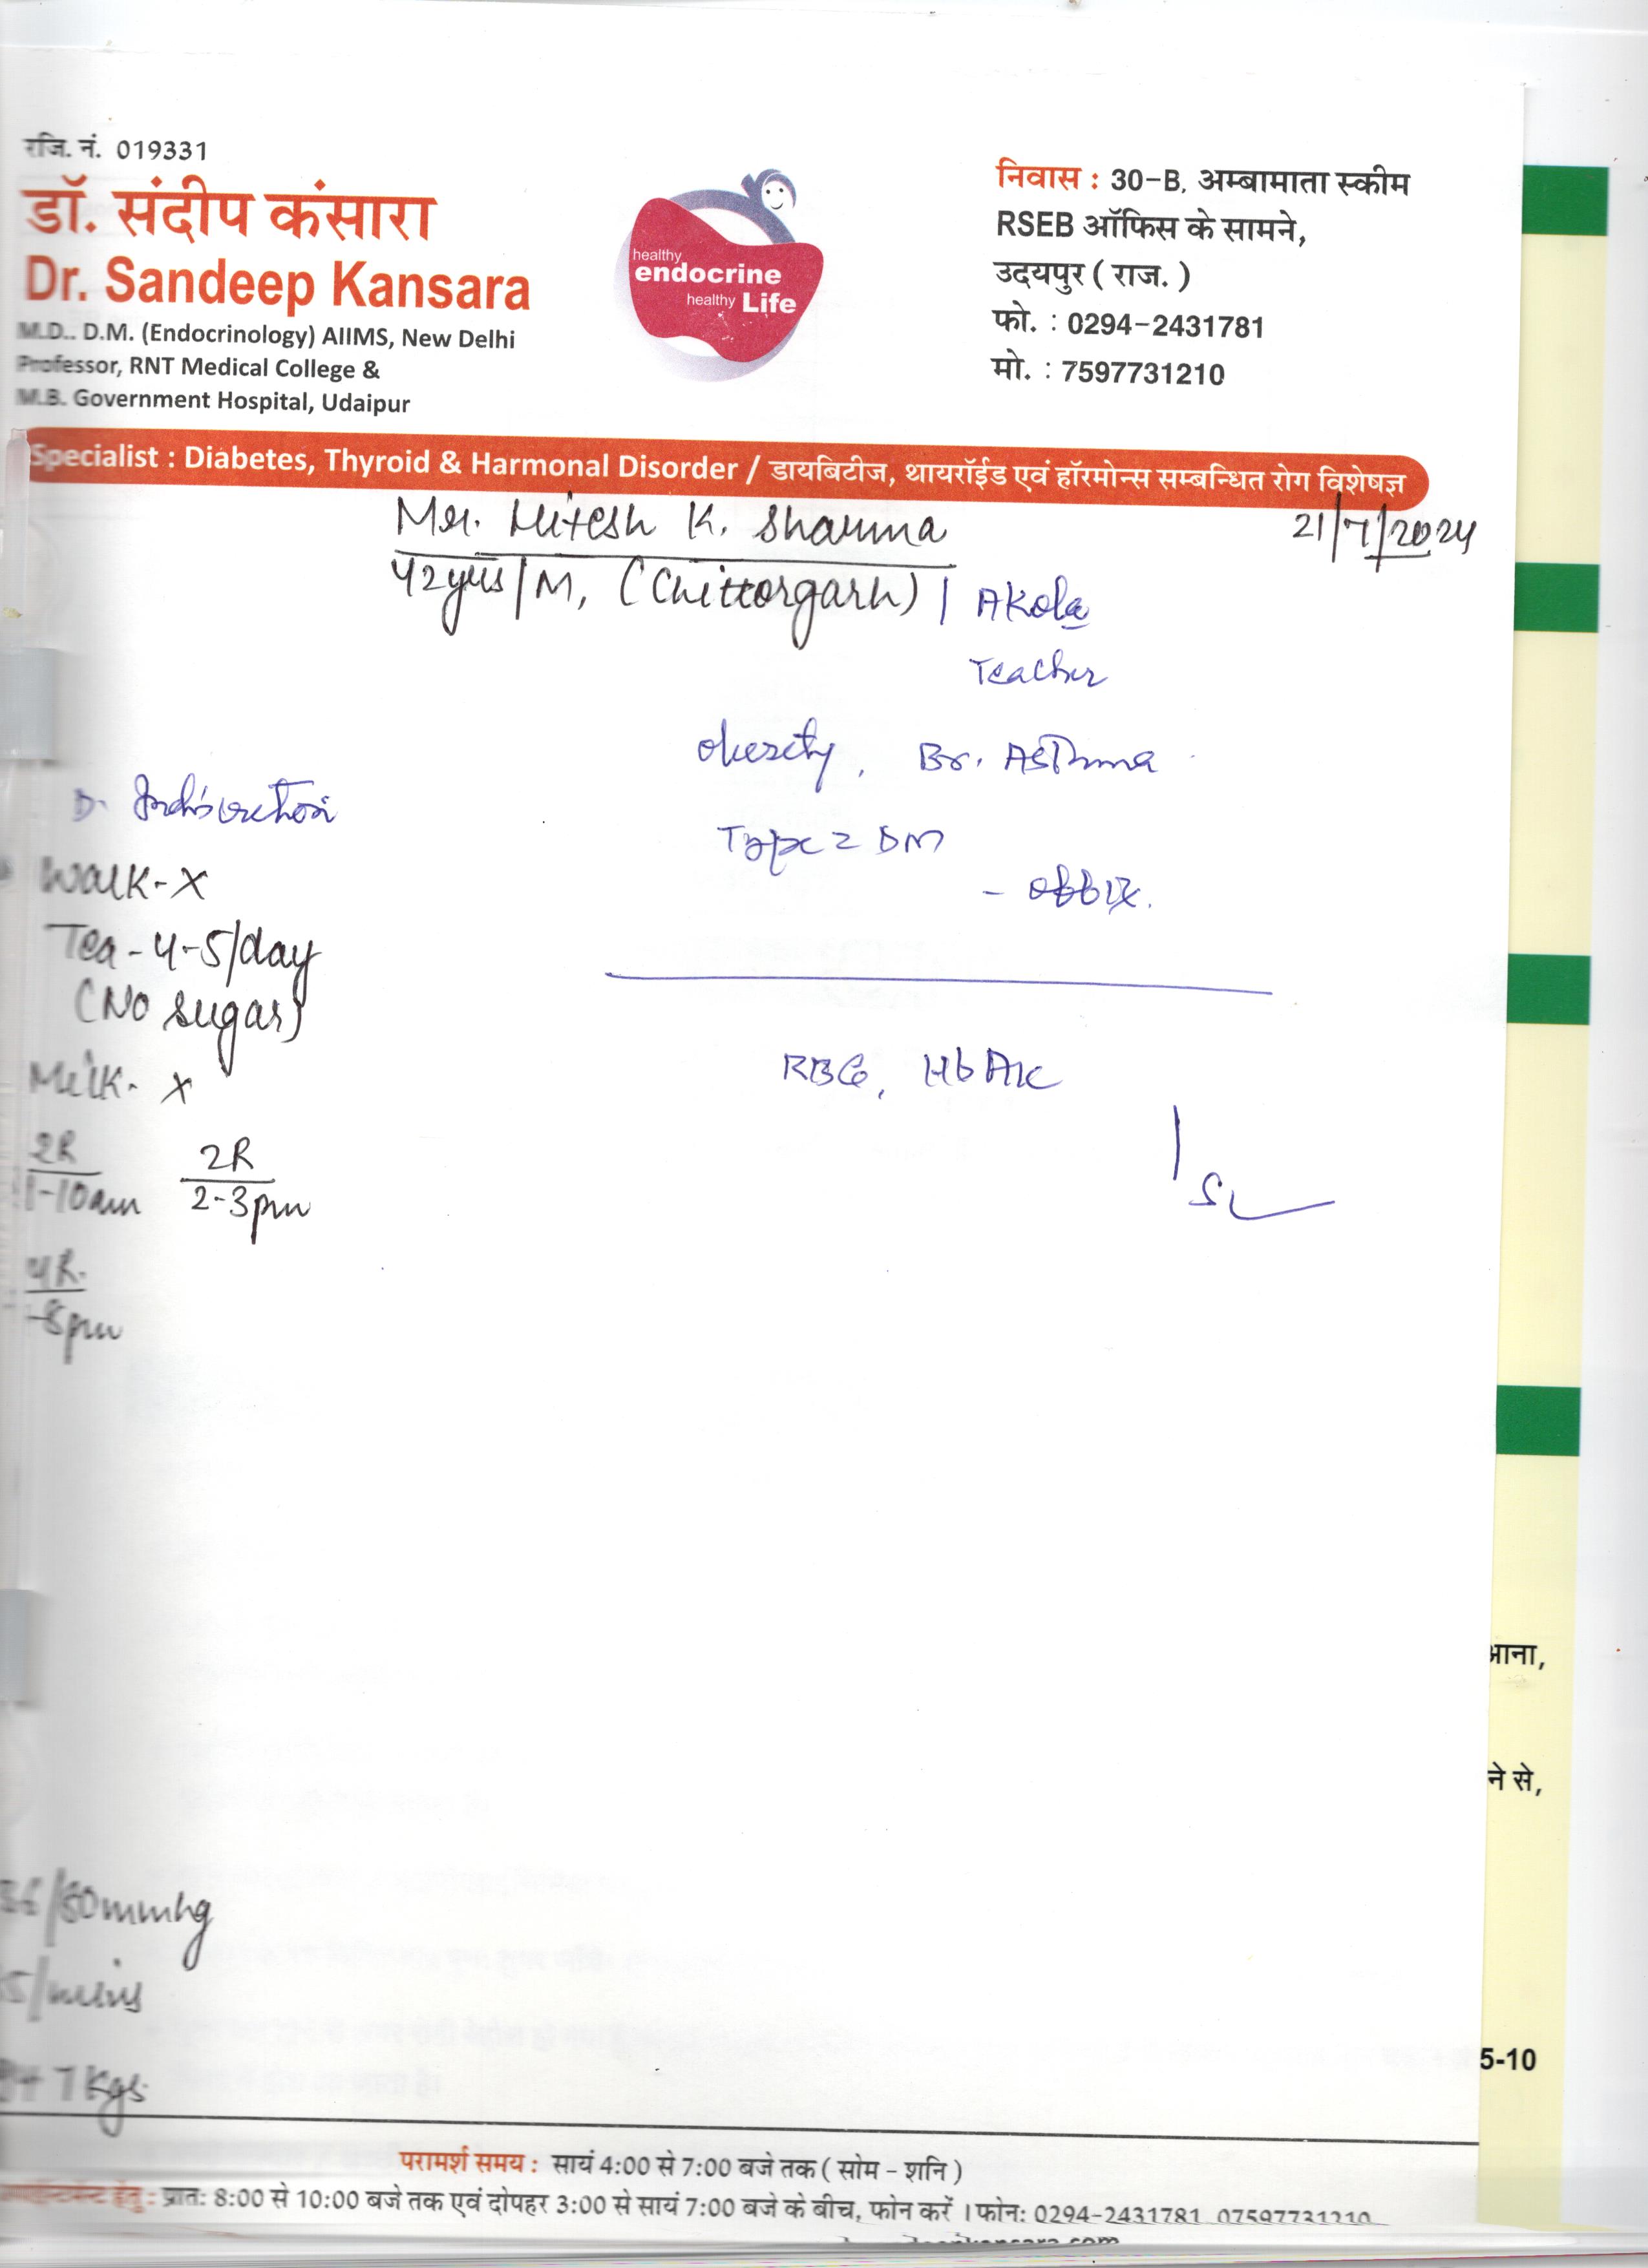 रजि. नं. 019331
डॉ. संदीप कंसारा
Dr. Sandeep Kansara
M.D.. D.M. (Endocrinology) AIIMS, New Delhi
Professor, RNT Medical College &
M.B. Government Hospital, Udaipur
healthy
endocrine
healthy Life
निवास : 30-B, अम्बामाता स्कीम
RSEB ऑफिस के सामने,
उदयपुर ( राज. )
फो. : 0294-2431781
मो. : 7597731210
Specialist : Diabetes, Thyroid & Harmonal Disorder / डायबिटीज, थायरॉईड एवं हॉरमोन्स सम्बन्धित रोग विशेषज्ञ
Mr. Hitesh K. Sharma
21/7/2024
42yrs/M, (Chittorgarh) | Akola
Teacher
Obesity, Br. Asthma
D. Indiscretion
Type 2 DM
Walk- X
- off Rx.
Tea - 4-5/day
(No sugar)
RBG, HbA1c
Milk- X
2R 2R
-10am 2-3pm
4R.
-8pm
/80mmhg
/mins
kgs
आना,
ने से,
5-10
परामर्श समय : सायं 4:00 से 7:00 बजे तक ( सोम - शनि )
हेतु : प्रात: 8:00 से 10:00 बजे तक एवं दोपहर 3:00 से सायं 7:00 बजे के बीच, फोन करें । फोन: 0294-2431781, 07597731210